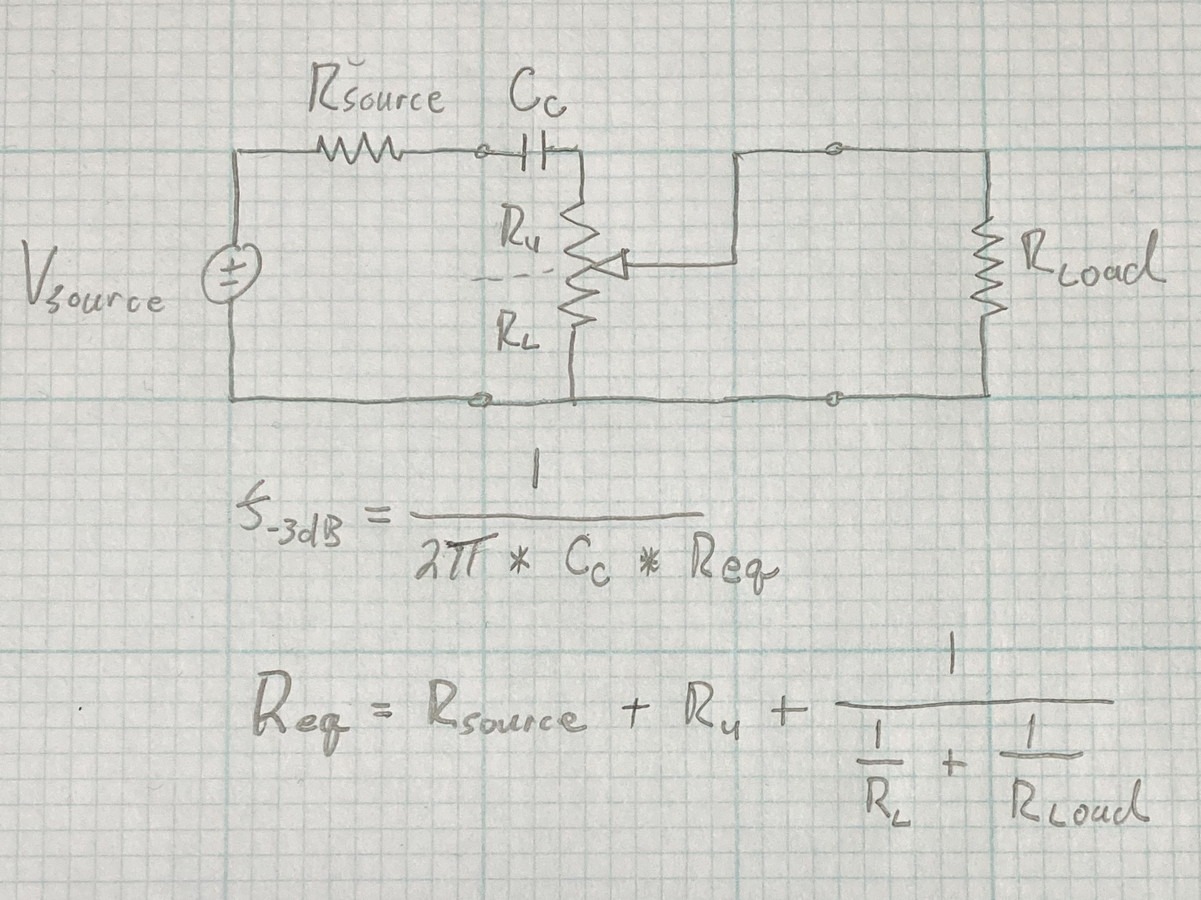 Rsource Cc
Ru
Vsource ± RLoad
RL
f-3dB = 1 / 2π * Cc * Req
Req = Rsource + Ru + 1 / 1/RL + 1/RLoad